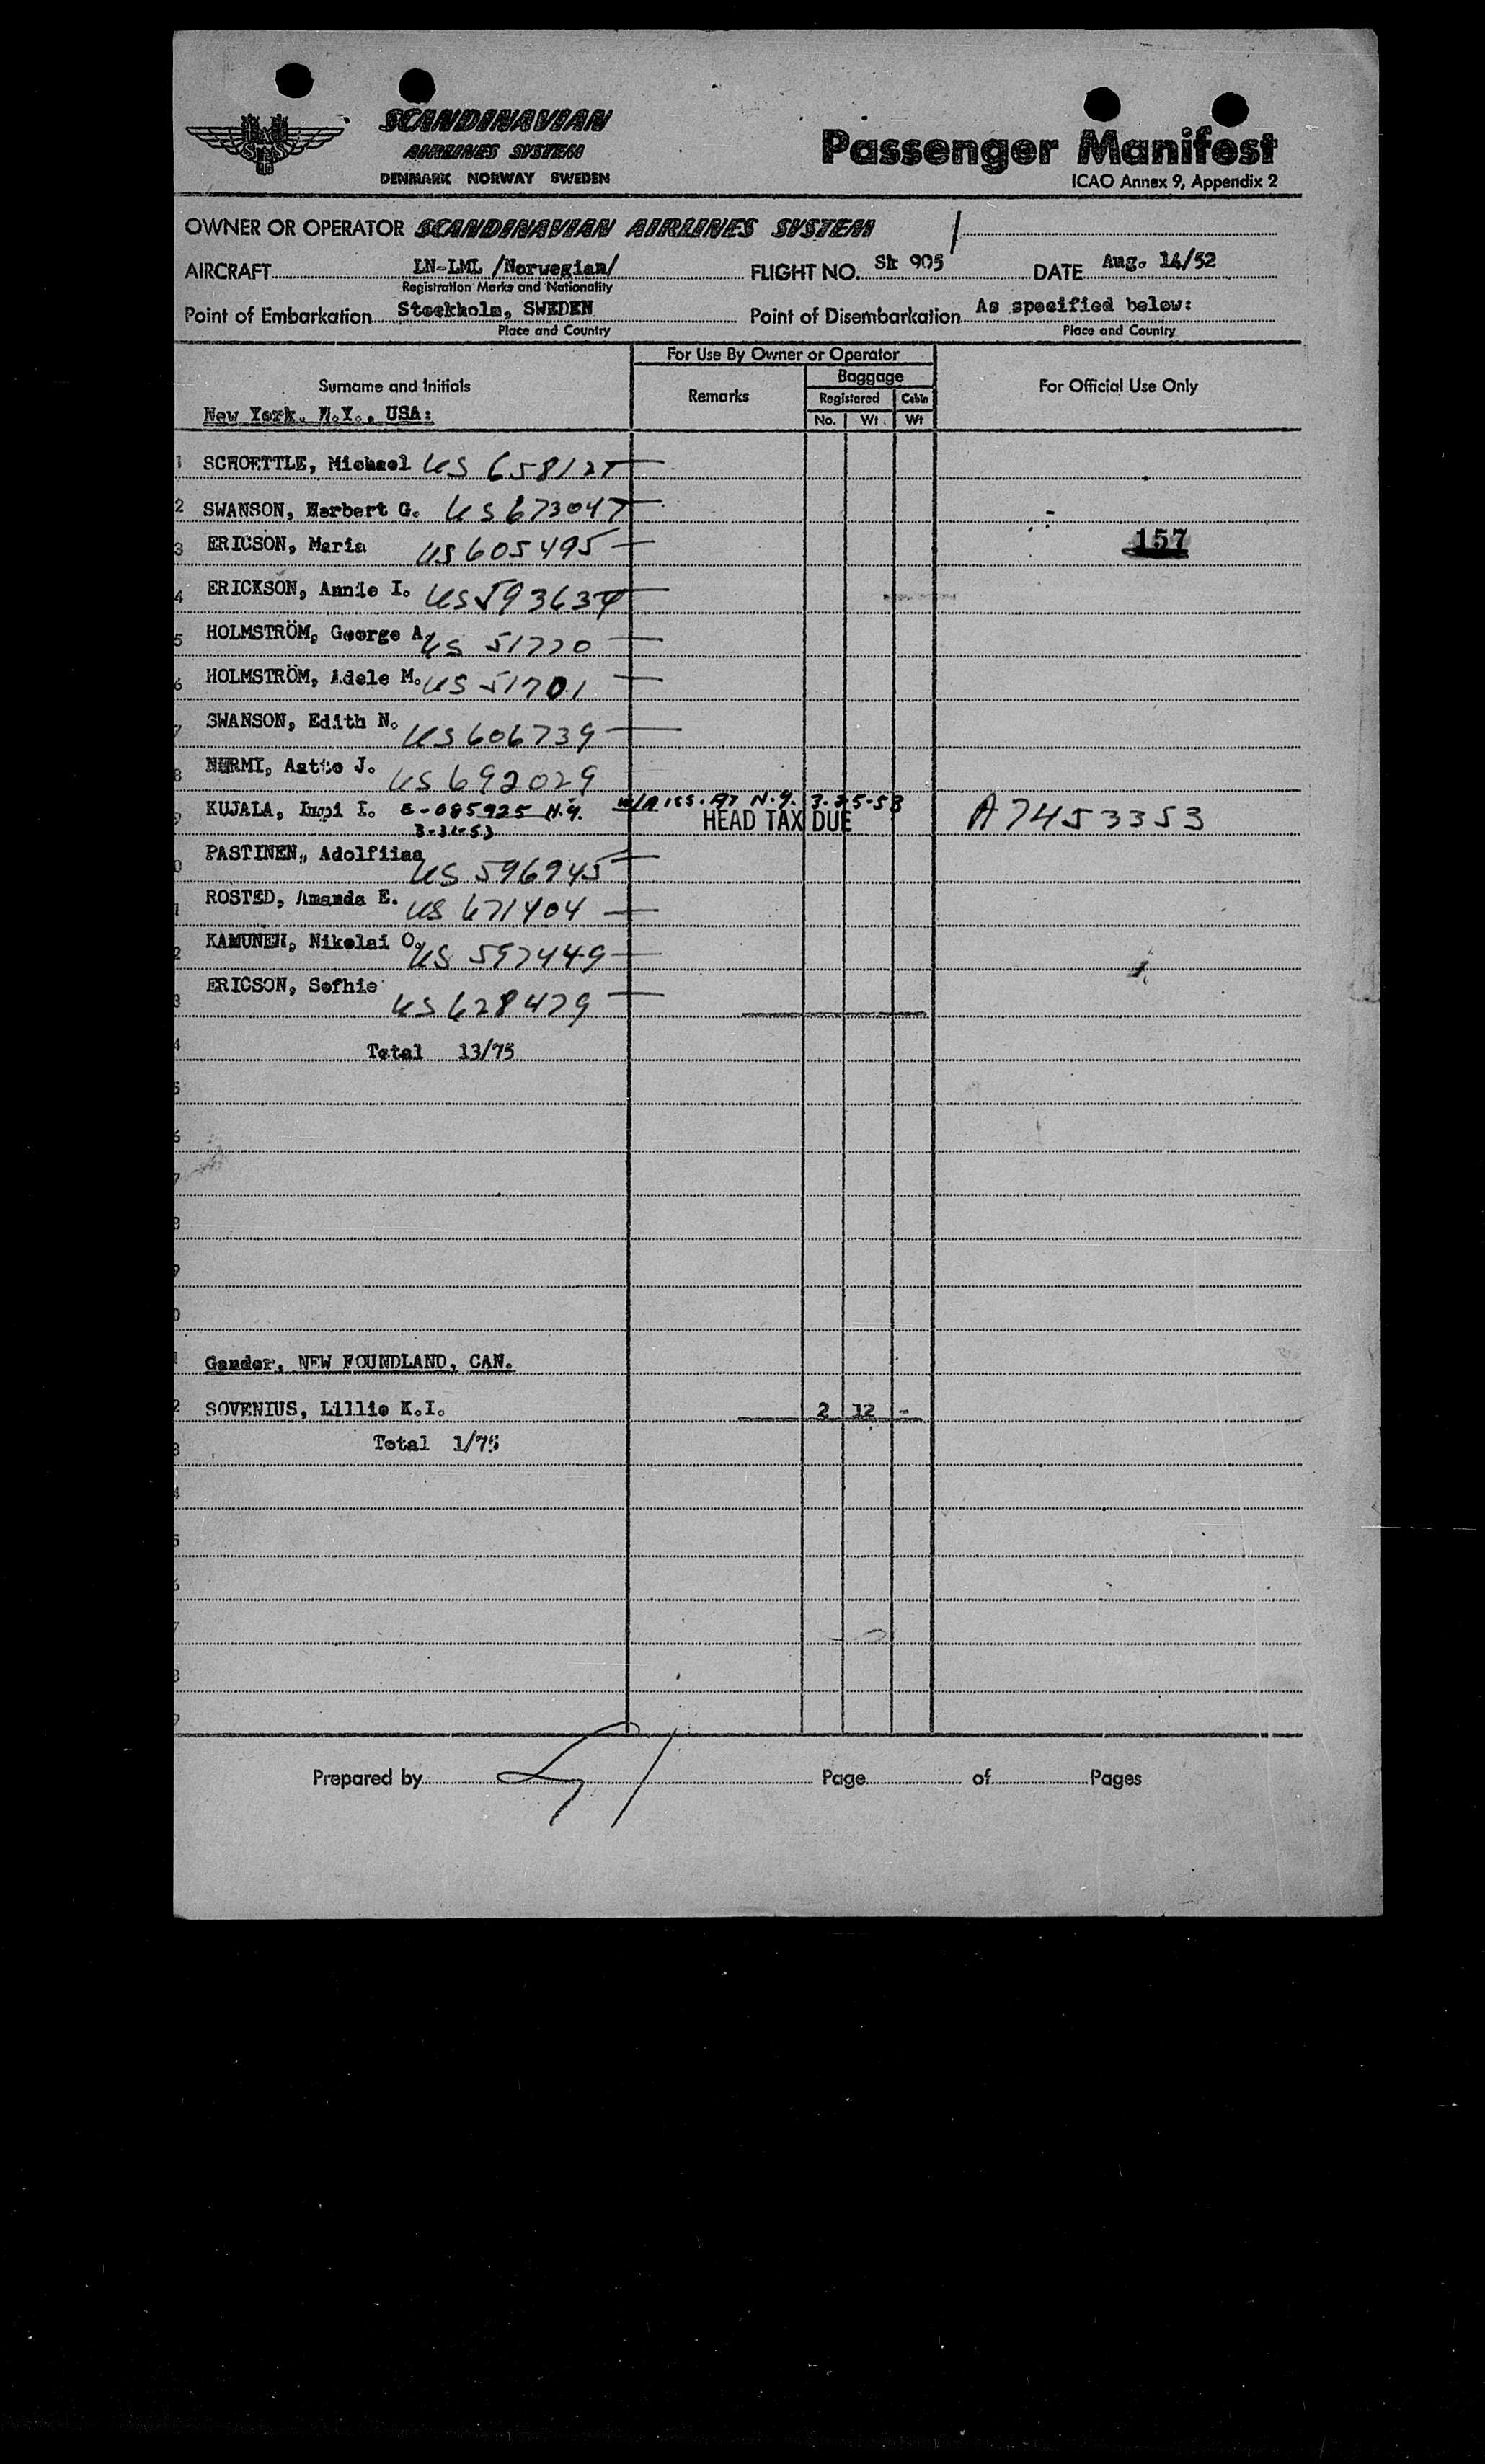 SCANDINAVIAN
AIRLINES SYSTEM
DENMARK NORWAY SWEDEN
Passenger Manifest
ICAO Annex 9, Appendix 2
OWNER OR OPERATOR SCANDINAVIAN AIRLINES SYSTEM
AIRCRAFT LN-LML /Norwegian/ FLIGHT NO. Sk 905 DATE Aug. 14/52
Registration Marks and Nationality
Point of Embarkation Stockholm, SWEDEN Point of Disembarkation As specified below:
Place and Country Place and Country
For Use By Owner or Operator
Surname and Initials Remarks Baggage For Official Use Only
Registered Cabin
No. Wt. Wt
New York. N.Y., USA:
1 SCHOETTLE, Michael US 658127
2 SWANSON, Herbert G. US 673047
3 ERICSON, Maria US 605495 157
4 ERICKSON, Annie I. US 593637
5 HOLMSTRÖM, George A. US 51720
6 HOLMSTRÖM, Adele M. US 51701
7 SWANSON, Edith N. US 606739
8 NURMI, J. US 692029
9 KUJALA, I. E-085925 N.Y. iss. At N.Y. 3-25-53 A7453353
3-31-53 HEAD TAX DUE
0 PASTINEN, Adolfiina US 596945
1 ROSTED, Amanda E. US 671404
2 KAMUNEN, Nikolai O. US 597449
3 ERICSON, Sofhie US 628479
4 Total 13/75
5
6
7
8
9
0
1 Gander, NEW FOUNDLAND, CAN.
2 SOVENIUS, Lillie K.I. 2 12 -
3 Total 1/75
4
5
6
7
8
9
Prepared by Page of Pages